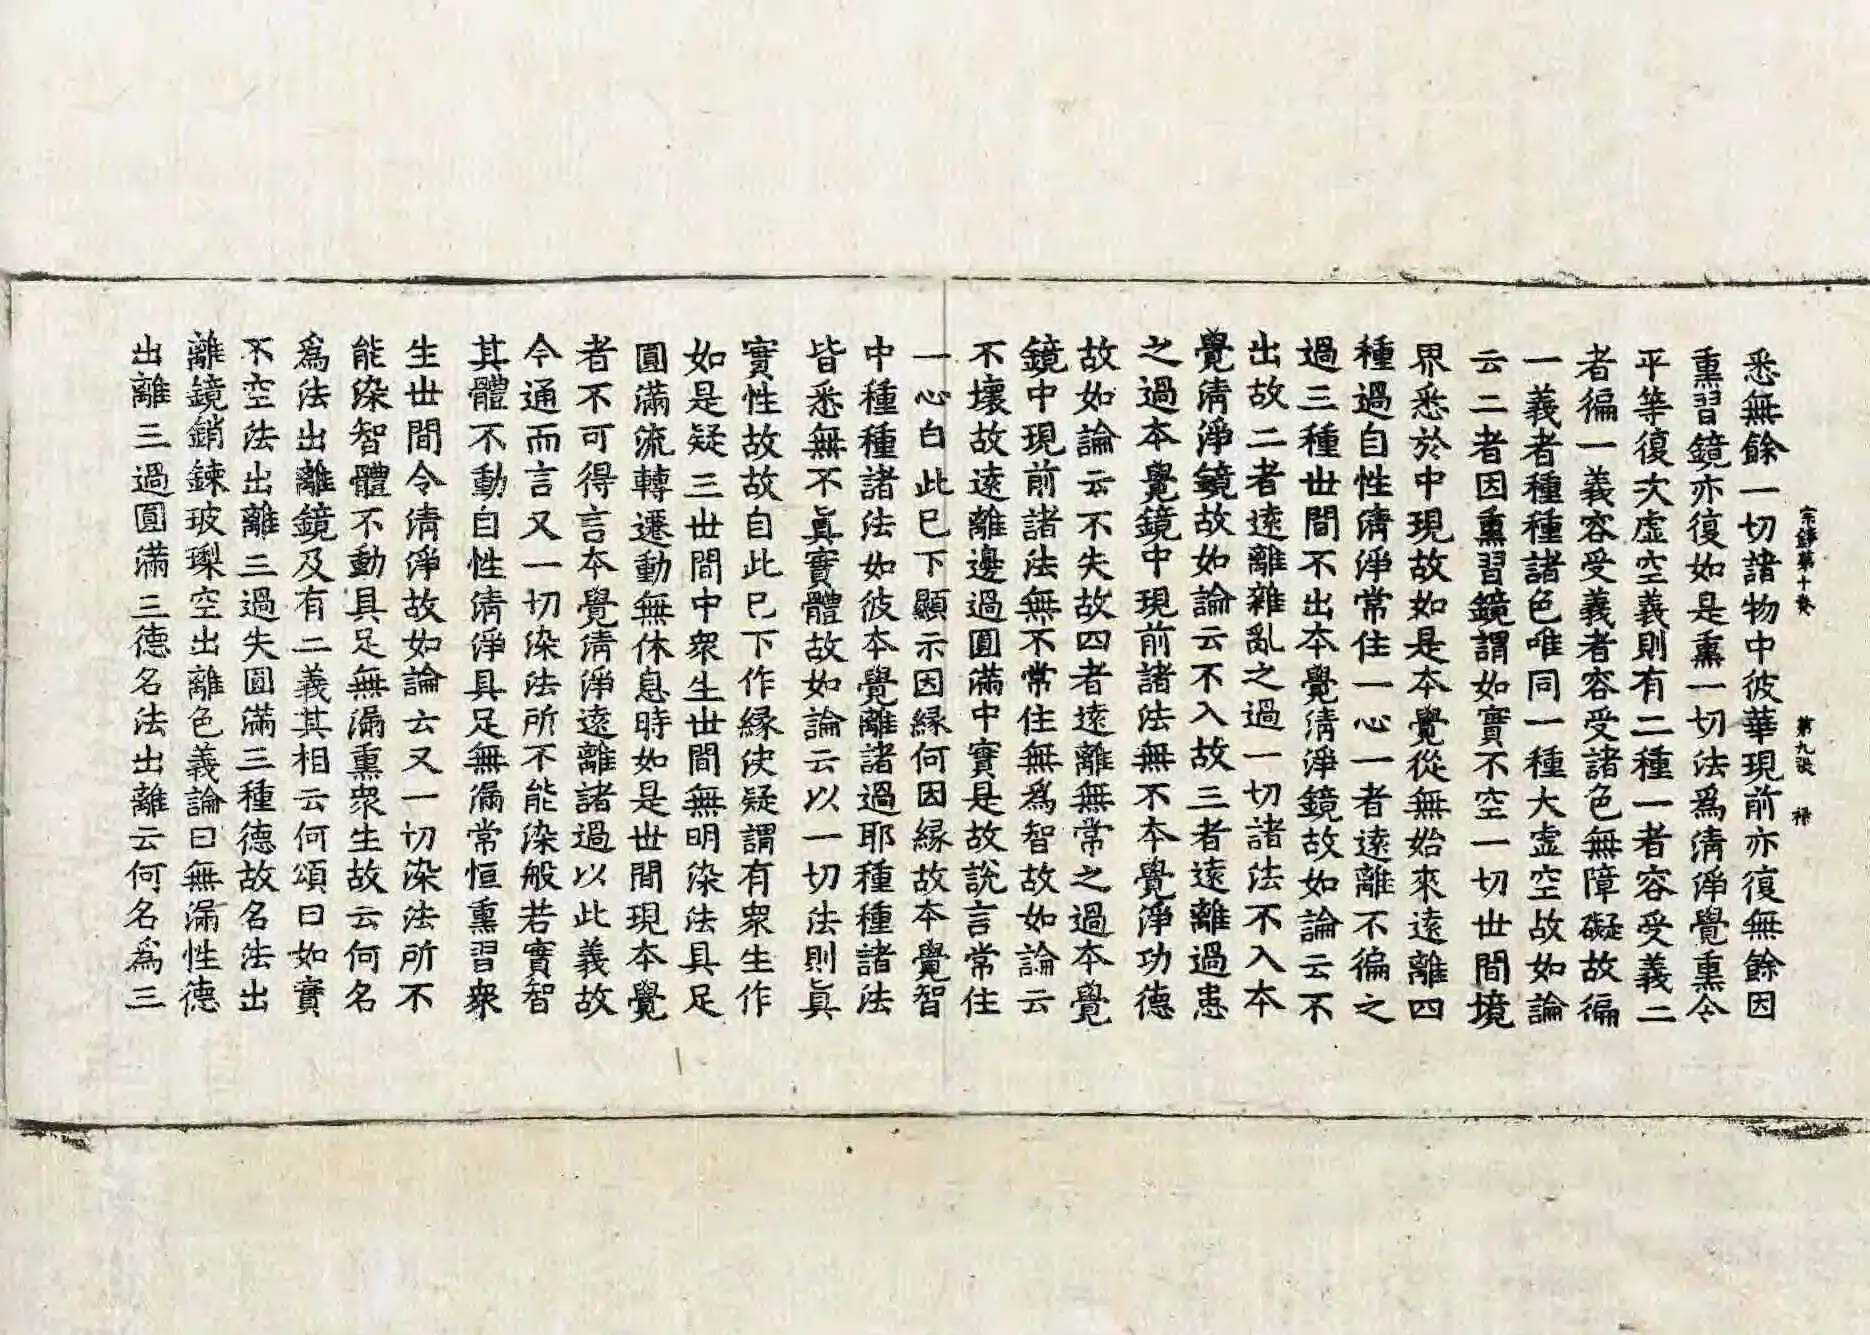 宗鏡第十卷 第九張 祿
悉無餘一切諸物中彼華現前亦復無餘因
熏習鏡亦復如是熏一切法爲淸淨覺熏令
平等復次虛空義則有二種一者容受義二
者徧一義容受義者容受諸色無障礙故徧
一義者種種諸色唯同一種大虛空故如論
云二者因熏習鏡謂如實不空一切世間境
界悉於中現故如是本覺從無始來遠離四
種過自性淸淨常住一心一者遠離不徧之
過三種世間不出本覺淸淨鏡故如論云不
出故二者遠離雜亂之過一切諸法不入本
覺淸淨鏡故如論云不入故三者遠離過患
之過本覺鏡中現前諸法無不本覺淨功德
故如論云不失故四者遠離無常之過本覺
鏡中現前諸法無不常住無爲智故如論云
不壞故遠離邊過圓滿中實是故說言常住
一心白此已下顯示因緣何因緣故本覺智
中種種諸法如彼本覺離諸過耶種種諸法
皆悉無不眞實體故如論云以一切法則眞
實性故故自此已下作緣決疑謂有衆生作
如是疑三世間中衆生世間無明染法具足
圓滿流轉遷動無休息時如是世間現本覺
者不可得言本覺淸淨遠離諸過以此義故
今通而言又一切染法所不能染般若實智
其體不動自性淸淨具足無漏常恒熏習衆
生世間令淸淨故如論云又一切染法所不
能染智體不動具足無漏熏衆生故云何名
爲法出離鏡及有二義其相云何頌曰如實
不空法出離三過失圓滿三種德故名法出
離鏡銷鍊玻瓈空出離色義論曰無漏性德
出離三過圓滿三德名法出離云何名爲三